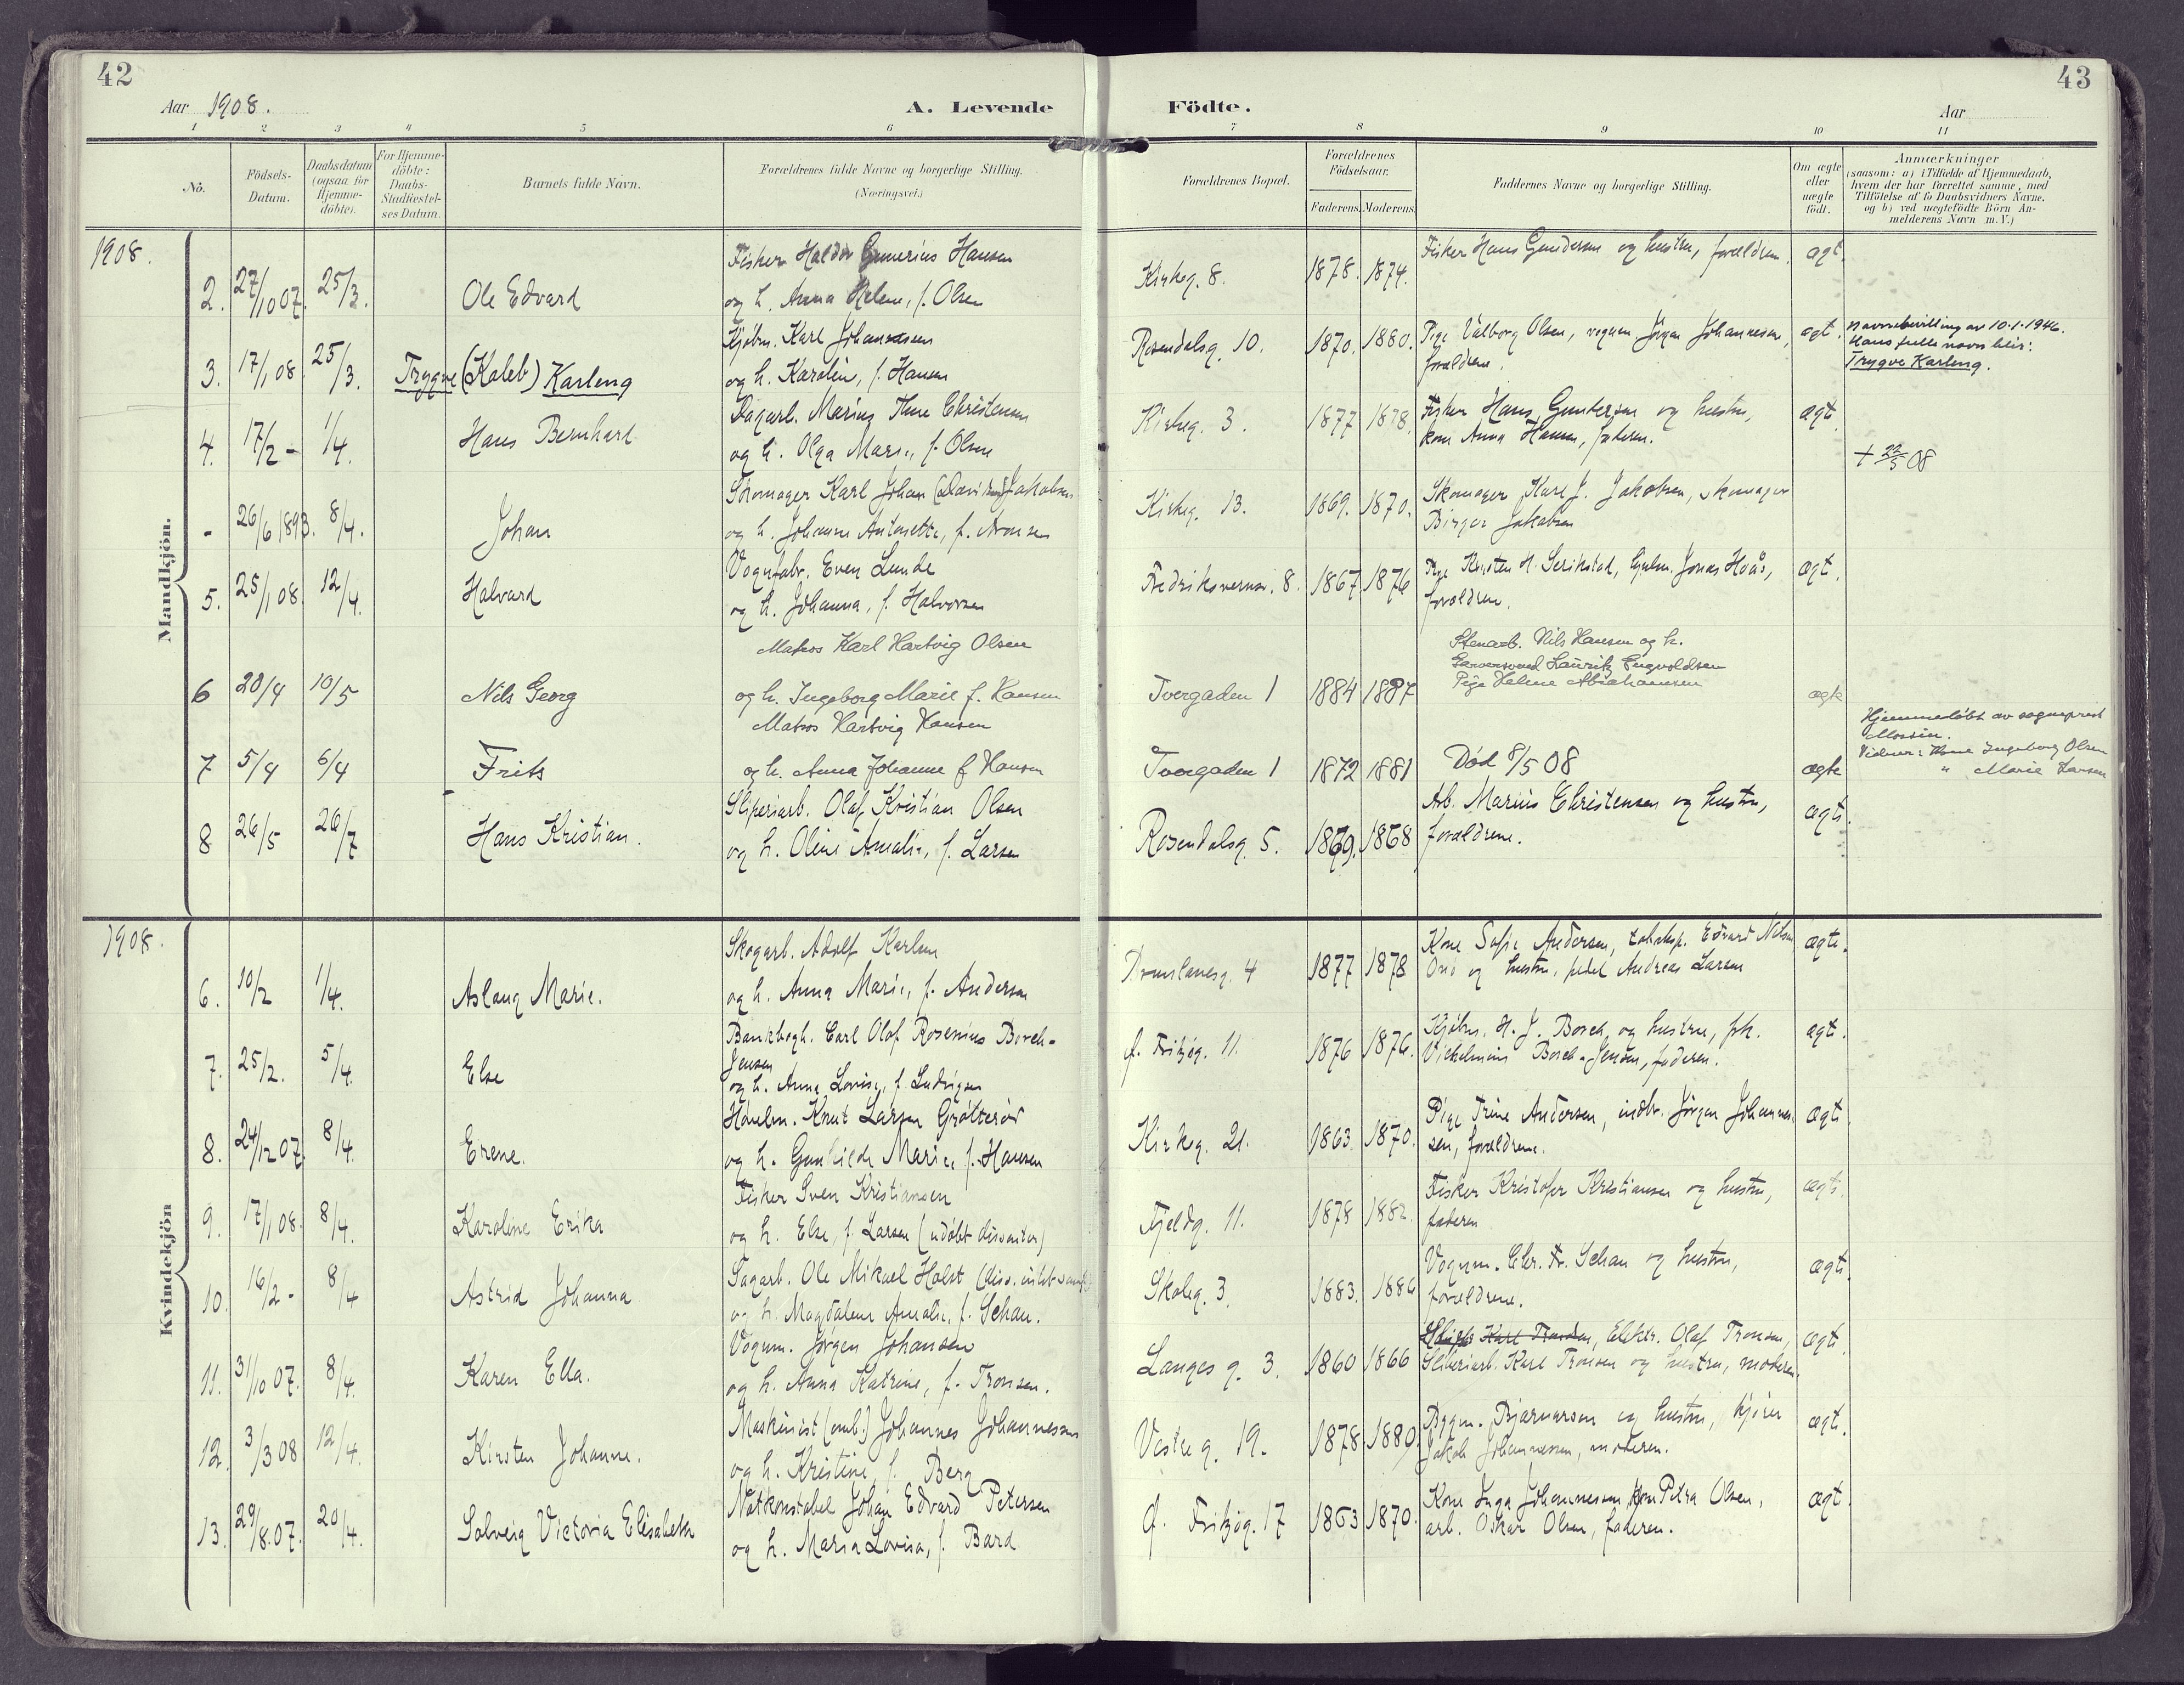 42
43
Aar 1908.
A. Levende
Födte.
Aar
1 2 3 4 5 6 7 8 9 10 11
No.
Födsels-
Datum.
Daabsdatum
(ogsaa for
Hjemme-
döbte).
For Hjemme-
döbte:
Daabs-
Stadfæstel-
ses Datum.
Barnets fulde Navn.
Forældrenes fulde Navne og borgerlige Stilling.
(Næringsvei.)
Forældrenes Bopæl.
Forældrenes
Födselsaar.
Faderens. Moderens.
Faddernes Navne og borgerlige Stilling.
Om ægte
eller
uægte
födt.
Anmærkninger
(saasom: a) i Tilfælde af Hjemmedaab,
hvem der har forrettet samme, med
Tilföielse af to Daabsvidners Navne,
og b) ved uægtefödte Börn An-
melderens Navn m.V.)
Mandkjön.
1908.
2. 27/10 07. 25/3. Ole Edvard
Fisker Haldor Gunerius Hansen
og h. Anna Helene, f. Olsen
Kirkeg. 8. 1878. 1874.
Fisker Hans Gundersen og hustru, forældrene. ægt.
3. 17/1 08. 25/3. Trygve (Kaleb) Karleng
Kjøbm. Karl Johannessen
og h. Karolin, f. Hansen
Rosendalsg. 10. 1870. 1880.
Pige Valborg Olsen, vognm. Jørgen Johannesen,
forældrene. ægt.
Navnebevilling av 10.1.1946.
Hans fulle navn blir:
Trygve Karleng.
4. 17/2 - 1/4. Hans Bernhard
Dagarb. Marius Thue Christensen
og h. Olga Marie, f. Olsen
Kirkeg. 3. 1877 1878.
Fisker Hans Gundersen og hustru,
kone Anna Hansen, faderen. ægt.
+ 22/5 08
- 26/6 1893. 8/4. Johan
Skomager Karl Johan (Davidsen) Jakobsen
og h. Johanne Antonette, f. Aronsen
Kirkeg. 13. 1869. 1870.
Skomager Karl J. Jakobsen, skomager
Birger Jakobsen
5. 25/1 08. 12/4. Halvard
Vognfabr. Even Lunde
og h. Johanna, f. Halvorsen
Fredriksvernsv. 8. 1867 1876
Kirsten H. Jonas Hoås,
forældrene. ægt.
6 20/4 10/5 Nils Georg
Matros Karl Hartvig Olsen
og h. Ingeborg Marie f. Hansen
Tvergaden 1 1884 1887
Stenarb. Nils Hansen og h.
Garversvend Lauritz Engvoldsen
Pige Helene Abrahamsen
ægte
7 5/4 6/4 Frits
Matros Hartvig Hansen
og h. Anna Johanne f Hansen
Tvergaden 1 1872 1881 Død 8/5 08 ægte
Hjemmedøbt av sogneprest
Vidner: Kone Ingeborg Olsen
" Marie Larsen
8 26/5 26/7 Hans Kristian.
Sliperiarb. Olaf Kristian Olsen
og h. Oline Amalie, f. Larsen
Rosendalsg. 5. 1869. 1868
Arb. Marius Christensen og hustru,
forældrene. ægte.
Kvindekjön
1908.
6. 10/2 1/4. Aslaug Marie.
Skogarb. Adolf Karlsen
og h. Anna Marie, f. Andersen
4 1877 1878
Kone Sofie Andersen, Edvard Nilsen
og hustru, Andreas Larsen ægte.
7. 25/2. 5/4. Else
Bankbogh. Carl Olaf Rosenius Borch-
Jensen
og h. Anna Lovise, f. Ludvigsen
Ø. Fritzøg. 11. 1876 1876.
Kjøbm. H. J. Borch, og hustru, frk.
Vilhelmine Borch-Jensen, faderen. ægt.
8. 24/12 07. 8/4. Erene.
Knut Larsen Grøtterød
og h. Gunhilde Marie, f. Hansen
Kirkeg. 21. 1863. 1870.
Pige Trine Andersen, Jørgen Johannes-
sen, forældrene. ægte.
9. 17/1 08. 8/4. Karoline Erika
Fisker Sven Kristiansen
og h. Else, f. Larsen (udøbt dissenter)
Fjeldg. 11. 1878 1882.
Fisker Kristofer Kristiansen og hustru,
faderen ægte.
10. 16/2 - 8/4 Astrid Johanna
Sagarb. Ole Mikael Holst
og h. Magdalene Amalie, f. Schau.
Skoleg. 3. 1883. 1886
Vognm. Chr. Fr. Schau og hustru,
forældrene. ægte.
11. 31/10 07. 8/4. Karen Ella.
Vognm. Jørgen Johansen
og h. Anna Katrine, f. Tronsen.
Langes g. 3. 1860 1866
Elektr. Olaf Tronsen,
Sliberiarb. Karl Tronsen og hustru, moderen. ægte.
12. 3/3 08 12/4. Kirsten Johanne.
Maskinist (omb.) Johannes Johannessen
og h. Kristine, f. Berg
Vestre g. 19. 1878. 1880.
Bygm. Bjarnarson og hustru,
Jakob Johannessen, moderen. ægte.
13. 29/8.07. 20/4. Solveig Victoria Elisabeth
Natkonstabel Johan Edvard Petersen
og h. Maria Lovisa, f. Bard
Ø. Fritzøg. 17 1863 1870.
Kone Inga Johannessen, kone Petra Olsen,
arb. Oskar Olsen, faderen. ægt.